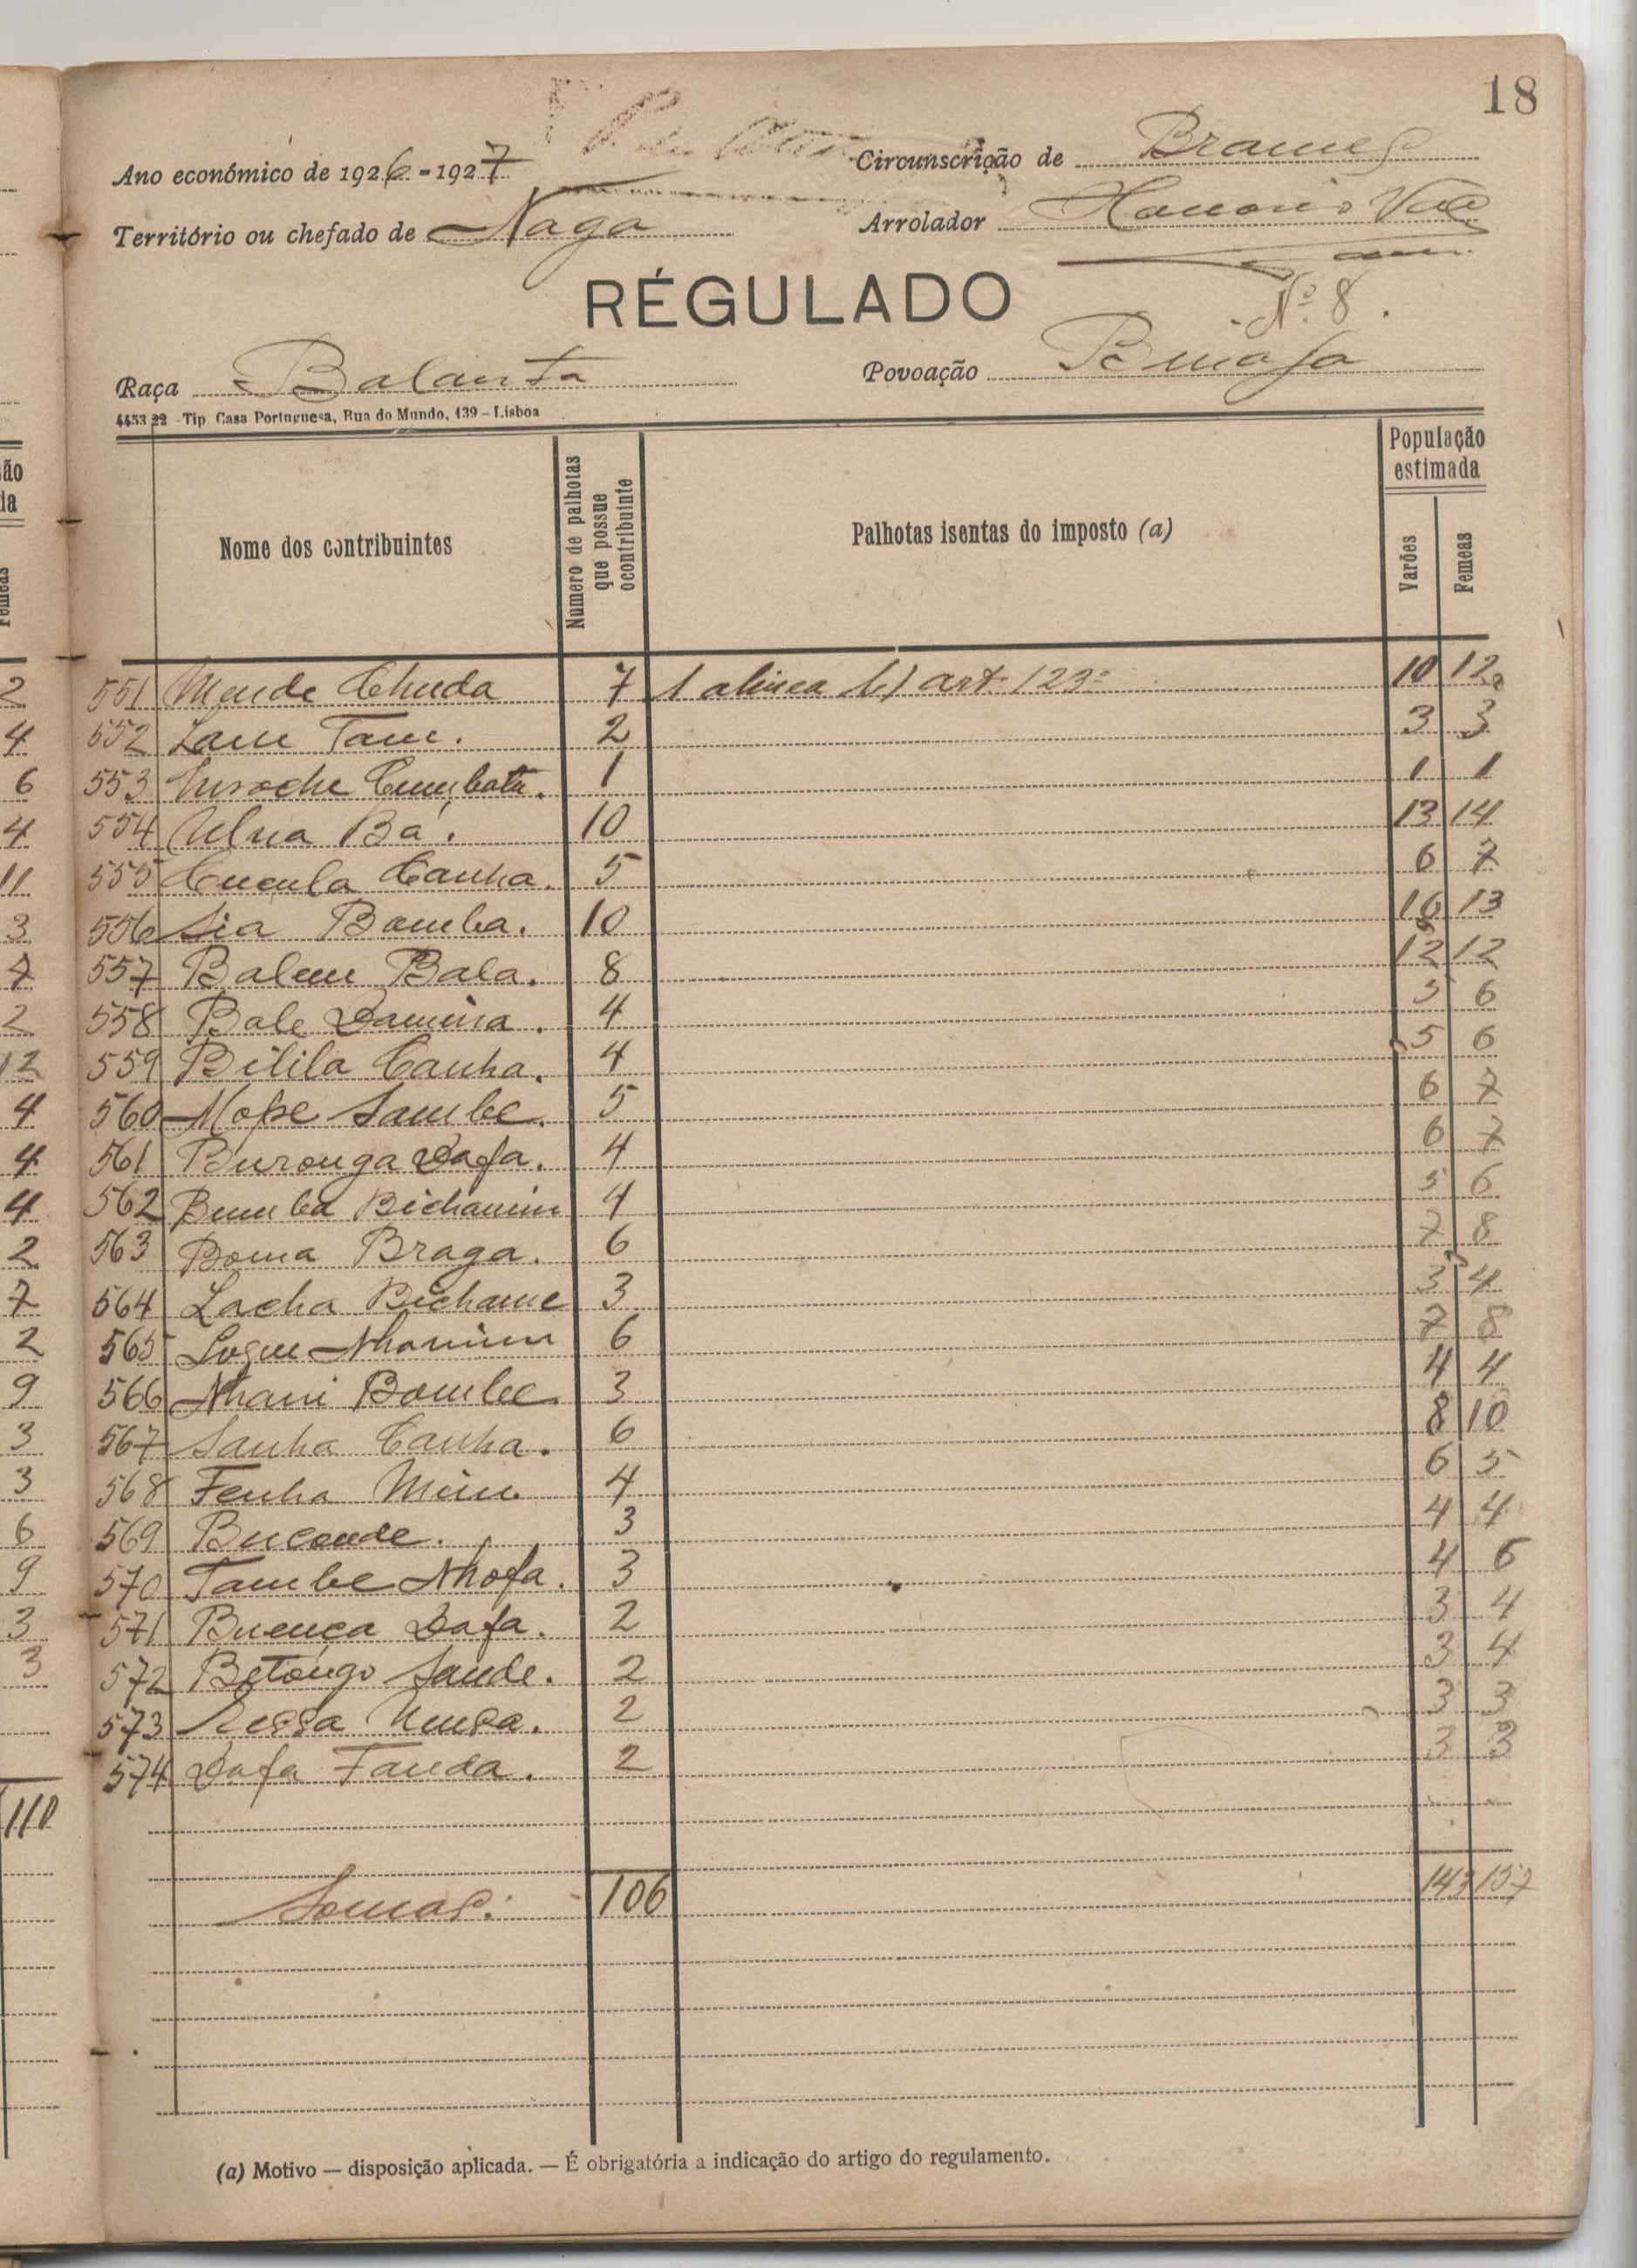 18
Ano económico de 1926-1927 Circunscrição de Brames
Território ou chefado de Naga Arrolador Honorio Vaz
RÉGULADO
Nº 8.
Raça Balanta Povoação Binafa
4453 22 - Tip Casa Portuguesa, Rua do Mundo, 139 - Lisboa
Nome dos contribuintes Número de palhotas que possue o contribuinte Palhotas isentas do imposto (a) População estimada Varões Femeas
2 551 Mende Chuda 7 1 alinea b) art. 123º 10 12
4 552 Lam Tam. 2 3 3
6 553 Cumbata. 1 1 1
4 554 Ulna Ba. 10 13 14
11 555 Cucula Canha. 5 6 7
3 556 Sia Bomba. 10 16 13
7 557 Balem Bala. 8 12 12
2 558 Bale Damina. 4 5 6
12 559 Bilila Canha. 4 5 6
4 560 Mope Sambe. 5 6 7
4 561 Buronga Dafa. 4 6 7
4 562 Bumba Bichamim 4 5 6
2 563 Boma Braga. 6 7 8
7 564 Lacha Bichame 3 3 4
2 565 Logue Nhamim 6 7 8
9 566 Nhani Bombe 3 4 4
3 567 Sanha Canha. 6 8 10
3 568 Fenha Mim. 4 6 5
6 569 Buconde. 3 4 4
9 570 Tambe Nhofa. 3 4 6
3 571 Buença Dafa. 2 3 4
3 572 Betongo Sande. 2 3 4
573 2 3 3
574 Dafa Tanda. 2 3 3
110
Somas: 106 143 157
(a) Motivo — disposição aplicada. — É obrigatória a indicação do artigo do regulamento.